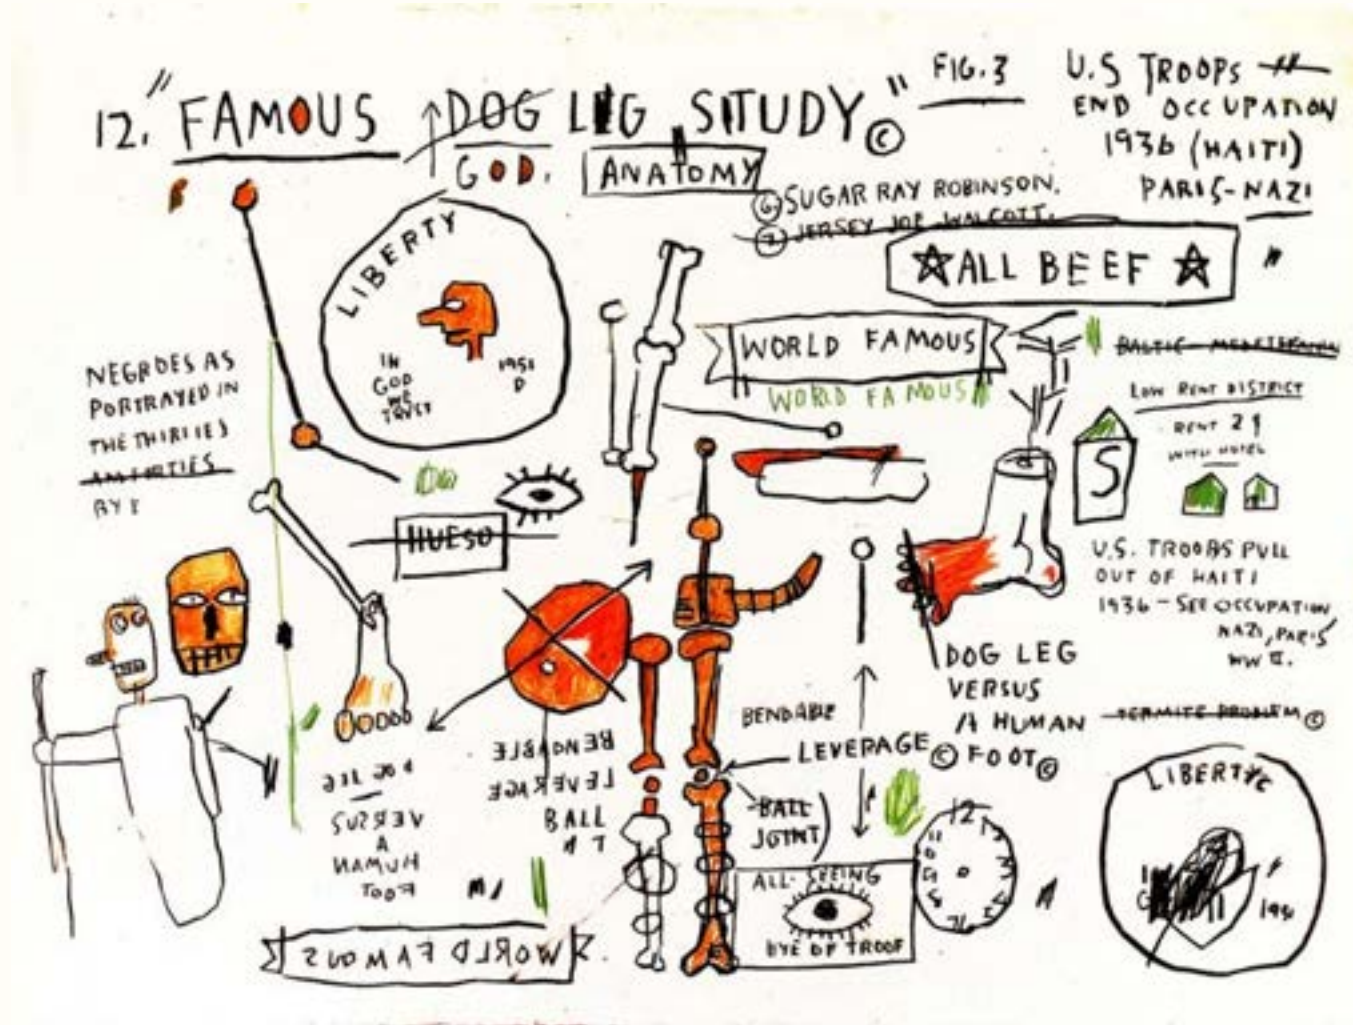 12. "FAMOUS DOG LEG STUDY" ©
GOD.
ANATOMY
FIG. 3
U.S TROOPS
END OCCUPATION
1936 (HAITI)
PARIS-NAZI
"
⑥ SUGAR RAY ROBINSON.
⑦ JERSEY JOE WALCOTT.
☆ALL BEEF ☆
LIBERTY
IN
GOD
WE
TRUST
1951
D
WORLD FAMOUS
WORLD FAMOUS
LOW RENT DISTRICT
RENT
WITH HOTEL
S
NEGROES AS
PORTRAYED IN
THE THIRTIES
BY
HUESO
U.S. TROOPS PULL
OUT OF HAITI
1936 - SEE OCCUPATION
NAZI, PARIS
WW II.
DOG LEG
VERSUS
A HUMAN
FOOT ©
BENDABLE
LEVERAGE ©
BALL
JOINT)
TERMITE PROBLEM ©
BENDABLE
LEVERAGE
BALL
DOG LEG
VERSUS
A
HUMAN
FOOT
ALL-SEEING
EYE OF TROOF
12
LIBERTY©
WORLD FAMOUS